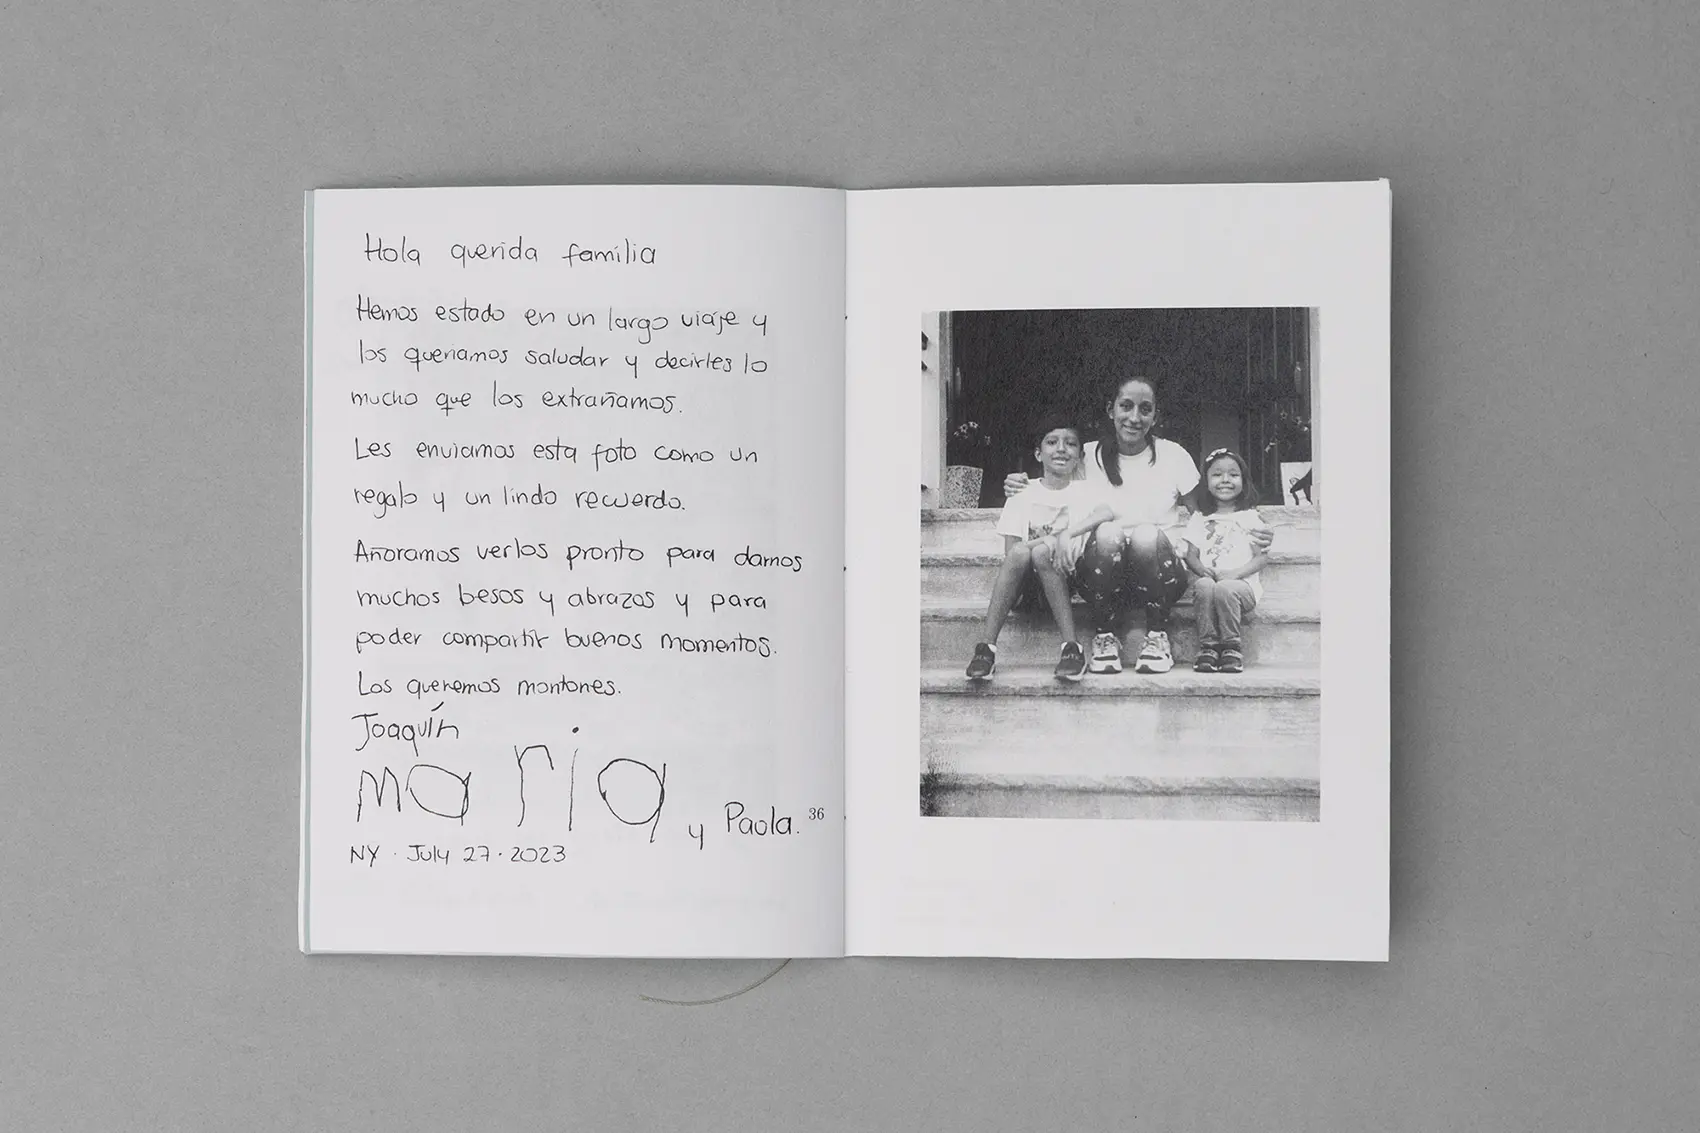 Hola querida familia
Hemos estado en un largo viaje y
los queriamos saludar y decirles lo
mucho que los extrañamos.
Les enviamos esta foto como un
regalo y un lindo recuerdo.
Añoramos verlos pronto para darnos
muchos besos y abrazos y para
poder compartir buenos momentos.
Los queremos montones.
Joaquín
maria y Paola. 36
NY · July 27 · 2023